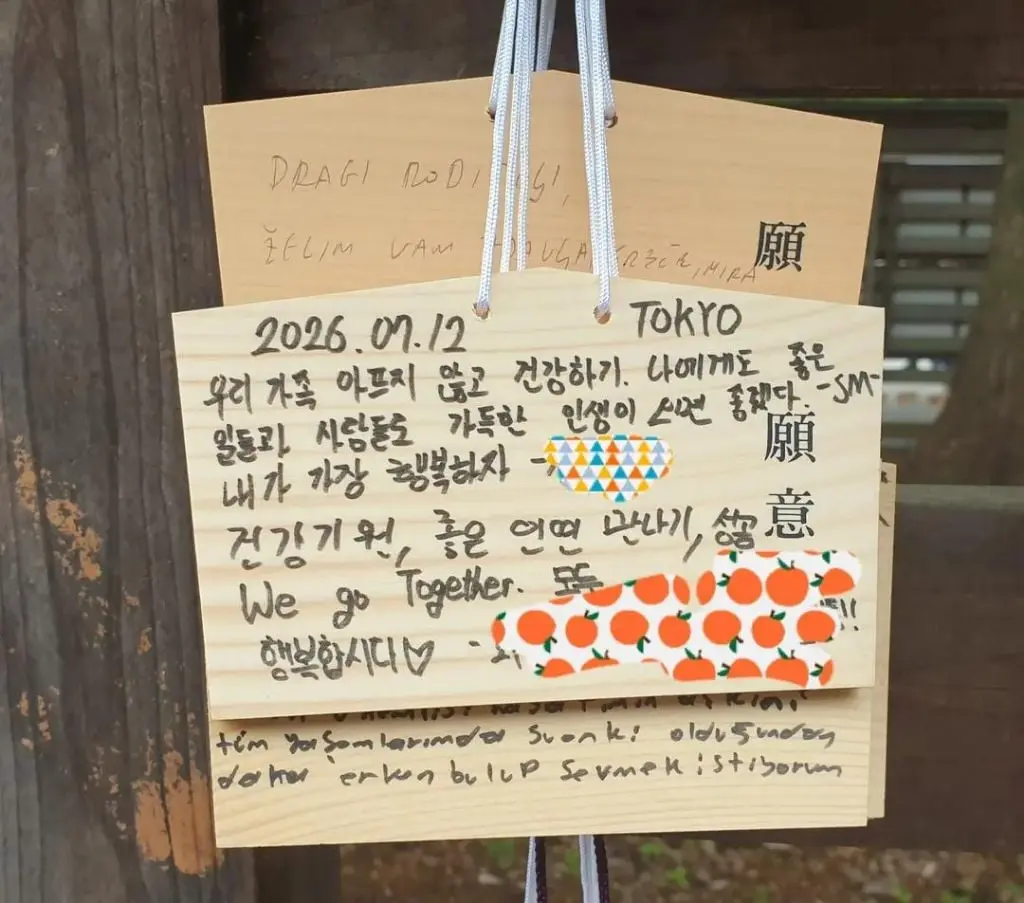 DRAGI
ŽELIM VAM MIRA
願
2026.07.12 TOKYO
우리 가족 아프지 않고 건강하기. 나에게도 좋은
일들과 사람들도 가득한 인생이 되면 좋겠다. -SM-
내가 가장 행복하자 -
願意
건강기원, 좋은 인연 만나기,
We go Together. 모두
행복합시다♡ -
tüm yaşamlarımda Sonki olduğundan
daha erken bulup sevmek istiyorum